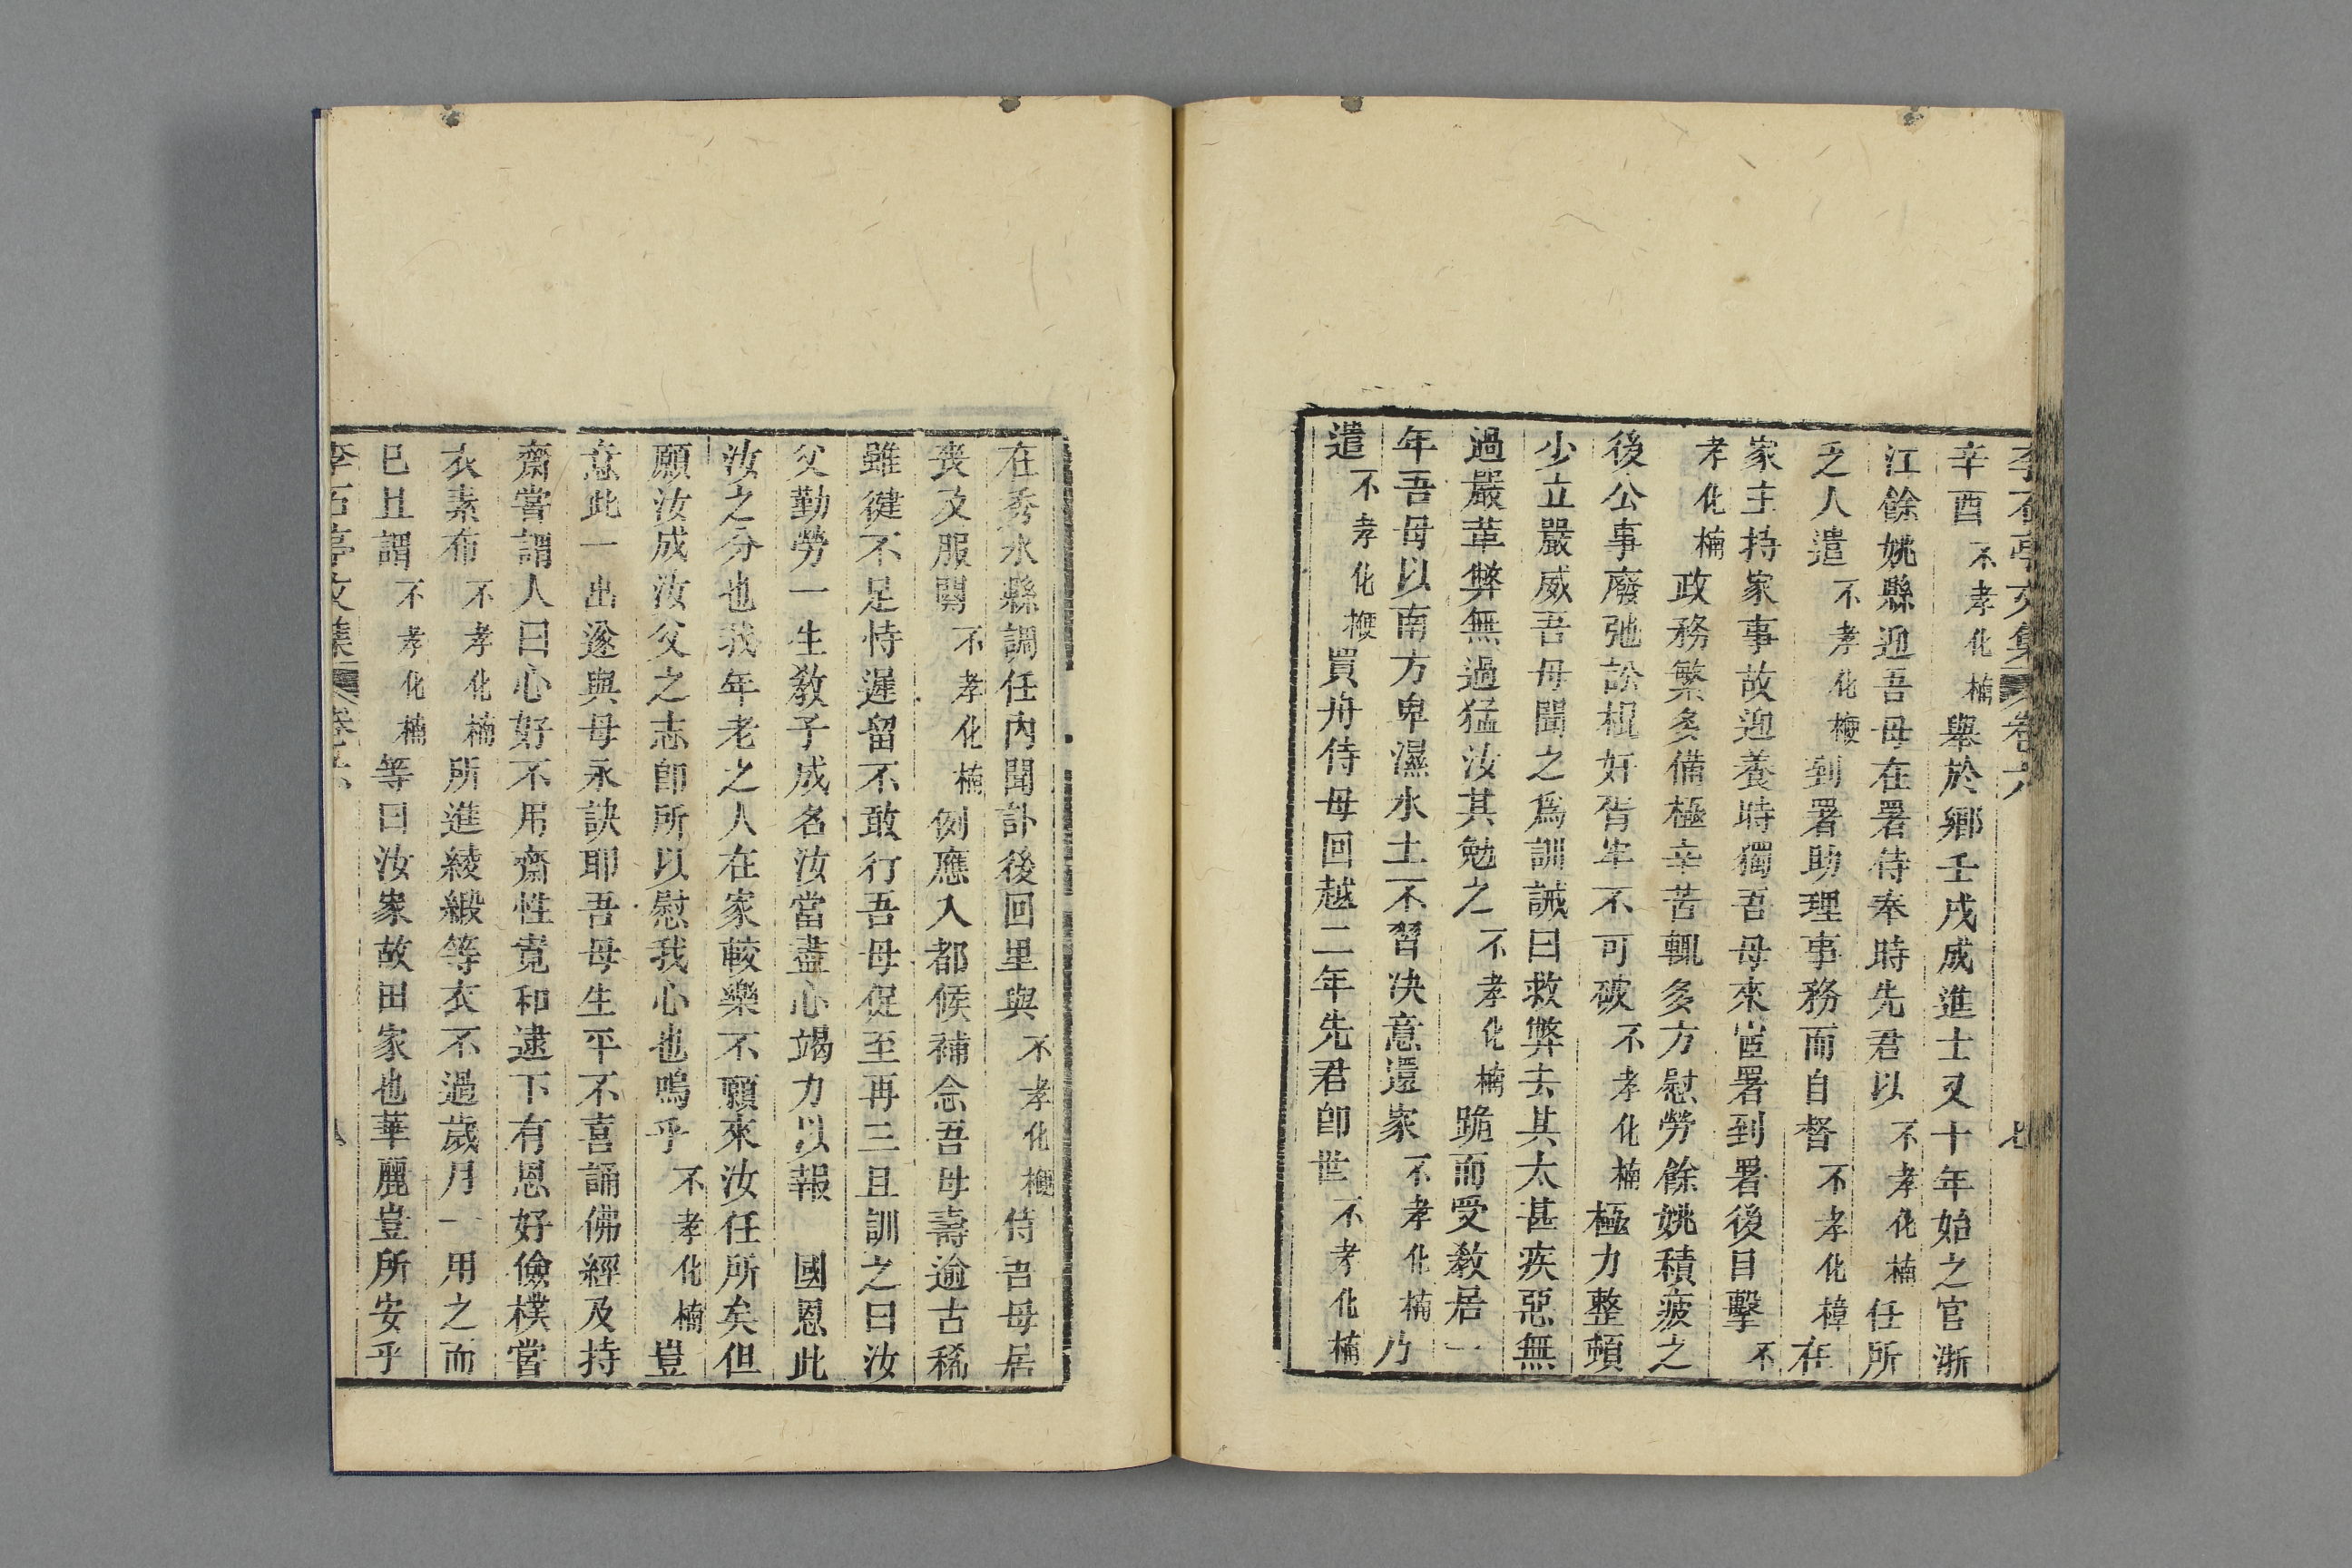 李石亭文集 卷六 七
辛酉不孝化楠舉於鄉壬戌成進士又十年始之官浙
江餘姚縣迎吾母在署侍奉時先君以不孝化楠任所
乏人遣不孝化㮰到署助理事務而自督不孝化樟在
家主持家事故迎養時獨吾母來宦署到署後目擊不
孝化楠政務繁多備極辛苦輒多方慰勞餘姚積疲之
後公事廢弛訟棍奸胥牢不可破不孝化楠極力整頓
少立嚴威吾母聞之爲訓誡曰救弊去其太甚疾惡無
過嚴革弊無過猛汝其勉之不孝化楠跪而受教居一
年吾母以南方卑濕水土不習决意還家不孝化楠乃
遣不孝化㮰買舟侍母回越二年先君卽世不孝化楠
在秀水縣調任內聞訃後回里與不孝化㮰侍吾母居
喪及服闋不孝化楠例應入都候補念吾母壽逾古稀
雖健不足恃遲留不敢行吾母促至再三且訓之曰汝
父勤勞一生教子成名汝當盡心竭力以報 國恩此
汝之分也我年老之人在家較樂不願來汝任所矣但
願汝成汝父之志卽所以慰我心也嗚乎不孝化楠豈
意此一出遂與母永訣耶吾母生平不喜誦佛經及持
齋嘗謂人曰心好不用齋性寬和逮下有恩好儉樸嘗
衣素布不孝化楠所進綾緞等衣不過歲月一用之而
已且謂不孝化楠等曰汝家故田家也華麗豈所安乎
李石亭文集 卷六 八